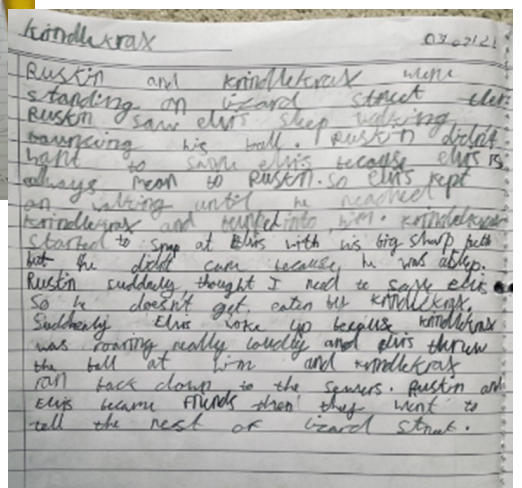 Krindlekrax
03.02.21
Rustin and Krindlekrax were
standing on Lizard street then
Rustin saw elvis sleep walking
bouncing his ball. Rustin didn't
want to save elvis because elvis is
always mean to Rustin. so elvis kept
on walking until he reached
Krindlekrax and bumped into him. Krindlekrax
started to snap at Elvis with his big sharp teeth
but he didnt care because he was asleep.
Rustin suddenly thought I need to save elvis
so he doesn't get eaten by Krindlekrax.
Suddenly Elvis woke up because Krindlekrax
was roaring really loudly and elvis threw
the ball at him and Krindlekrax
ran back down to the sewers. Rustin and
Elvis became friends then they went to
tell the rest of Lizard street.